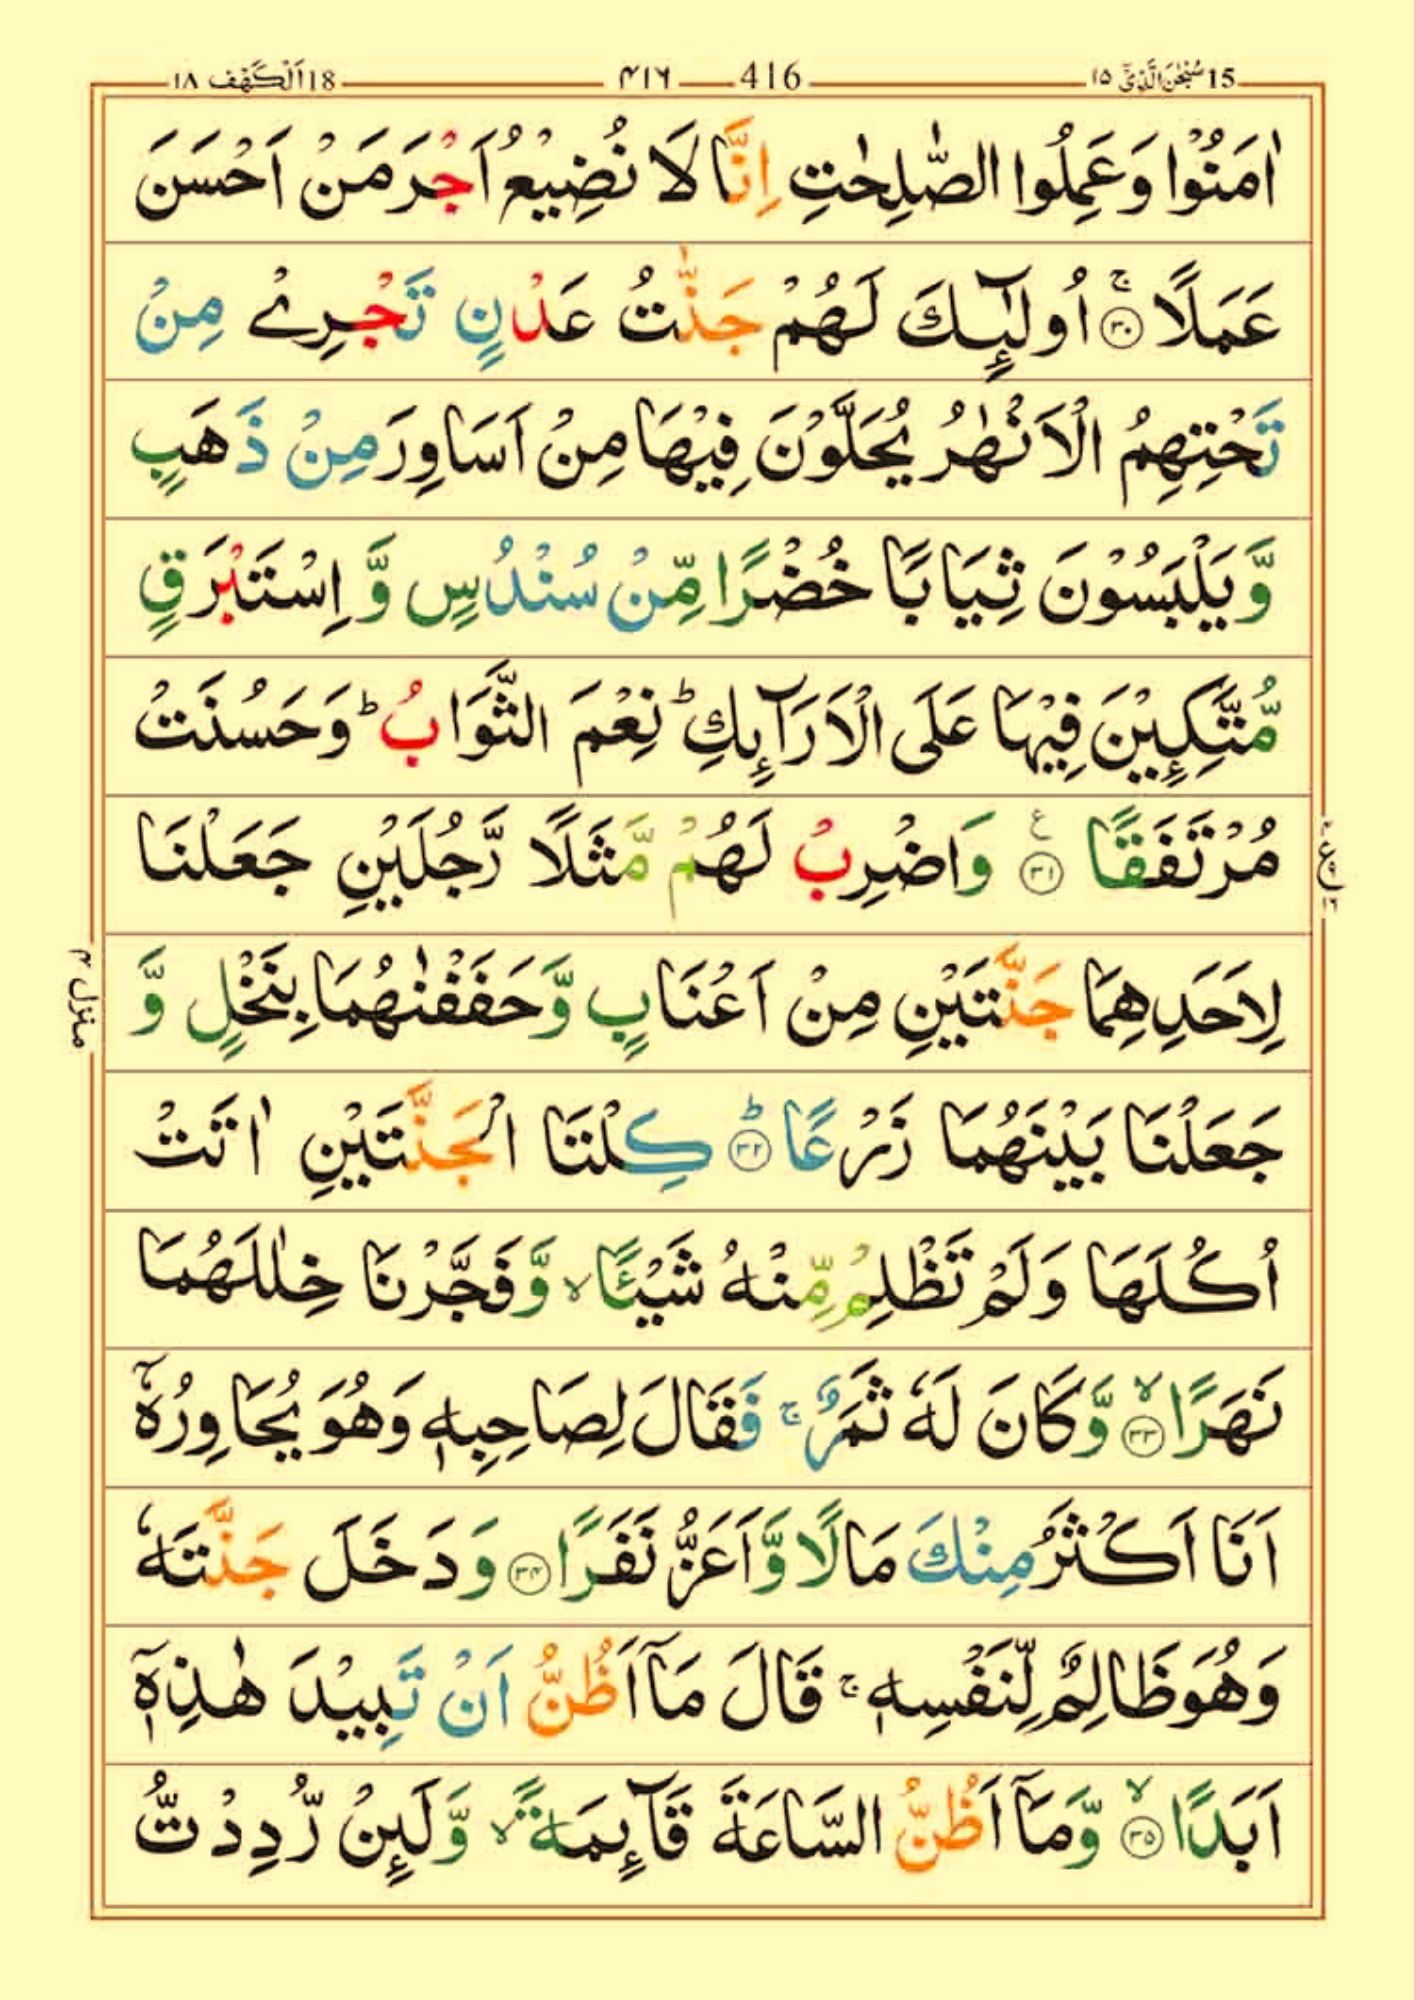 15 سُبْحٰنَ الَّذِیْۤ ١٥ — 416 — ۴۱۶ — 18 اَلْكَهْف ١٨
اٰمَنُوْا وَعَمِلُوا الصّٰلِحٰتِ اِنَّا لَا نُضِیْعُ اَجْرَ مَنْ اَحْسَنَ
عَمَلًا ۚ‏﴿۳۰﴾ اُولٰٓىِٕكَ لَهُمْ جَنّٰتُ عَدْنٍ تَجْرِیْ مِنْ
تَحْتِهِمُ الْاَنْهٰرُ یُحَلَّوْنَ فِیْهَا مِنْ اَسَاوِرَ مِنْ ذَهَبٍ
وَّیَلْبَسُوْنَ ثِیَابًا خُضْرًا مِّنْ سُنْدُسٍ وَّ اِسْتَبْرَقٍ
مُّتَّكِـِٕیْنَ فِیْهَا عَلَی الْاَرَآىِٕكِ ؕ نِعْمَ الثَّوَابُ ؕ وَحَسُنَتْ
مُرْتَفَقًا ﴿۳۱﴾ ع وَاضْرِبْ لَهُمْ مَّثَلًا رَّجُلَیْنِ جَعَلْنَا
لِاَحَدِهِمَا جَنَّتَیْنِ مِنْ اَعْنَابٍ وَّحَفَفْنٰهُمَا بِنَخْلٍ وَّ
جَعَلْنَا بَیْنَهُمَا زَرْعًا ؕ﴿۳۲﴾ كِلْتَا الْجَنَّتَیْنِ اٰتَتْ
اُكُلَهَا وَلَمْ تَظْلِمْ مِّنْهُ شَیْـًٔا ۙ وَّفَجَّرْنَا خِلٰلَهُمَا
نَهَرًا ۙ﴿۳۳﴾ وَّكَانَ لَهٗ ثَمَرٌ ۚ فَقَالَ لِصَاحِبِهٖ وَهُوَ یُحَاوِرُهٗۤ
اَنَا اَكْثَرُ مِنْكَ مَالًا وَّاَعَزُّ نَفَرًا ﴿۳۴﴾ وَدَخَلَ جَنَّتَهٗ
وَهُوَ ظَالِمٌ لِّنَفْسِهٖ ۚ قَالَ مَاۤ اَظُنُّ اَنْ تَبِیْدَ هٰذِهٖۤ
اَبَدًا ۙ﴿۳۵﴾ وَّمَاۤ اَظُنُّ السَّاعَةَ قَآىِٕمَةً ۙ وَّلَىِٕنْ رُّدِدْتُّ
منزل ۴